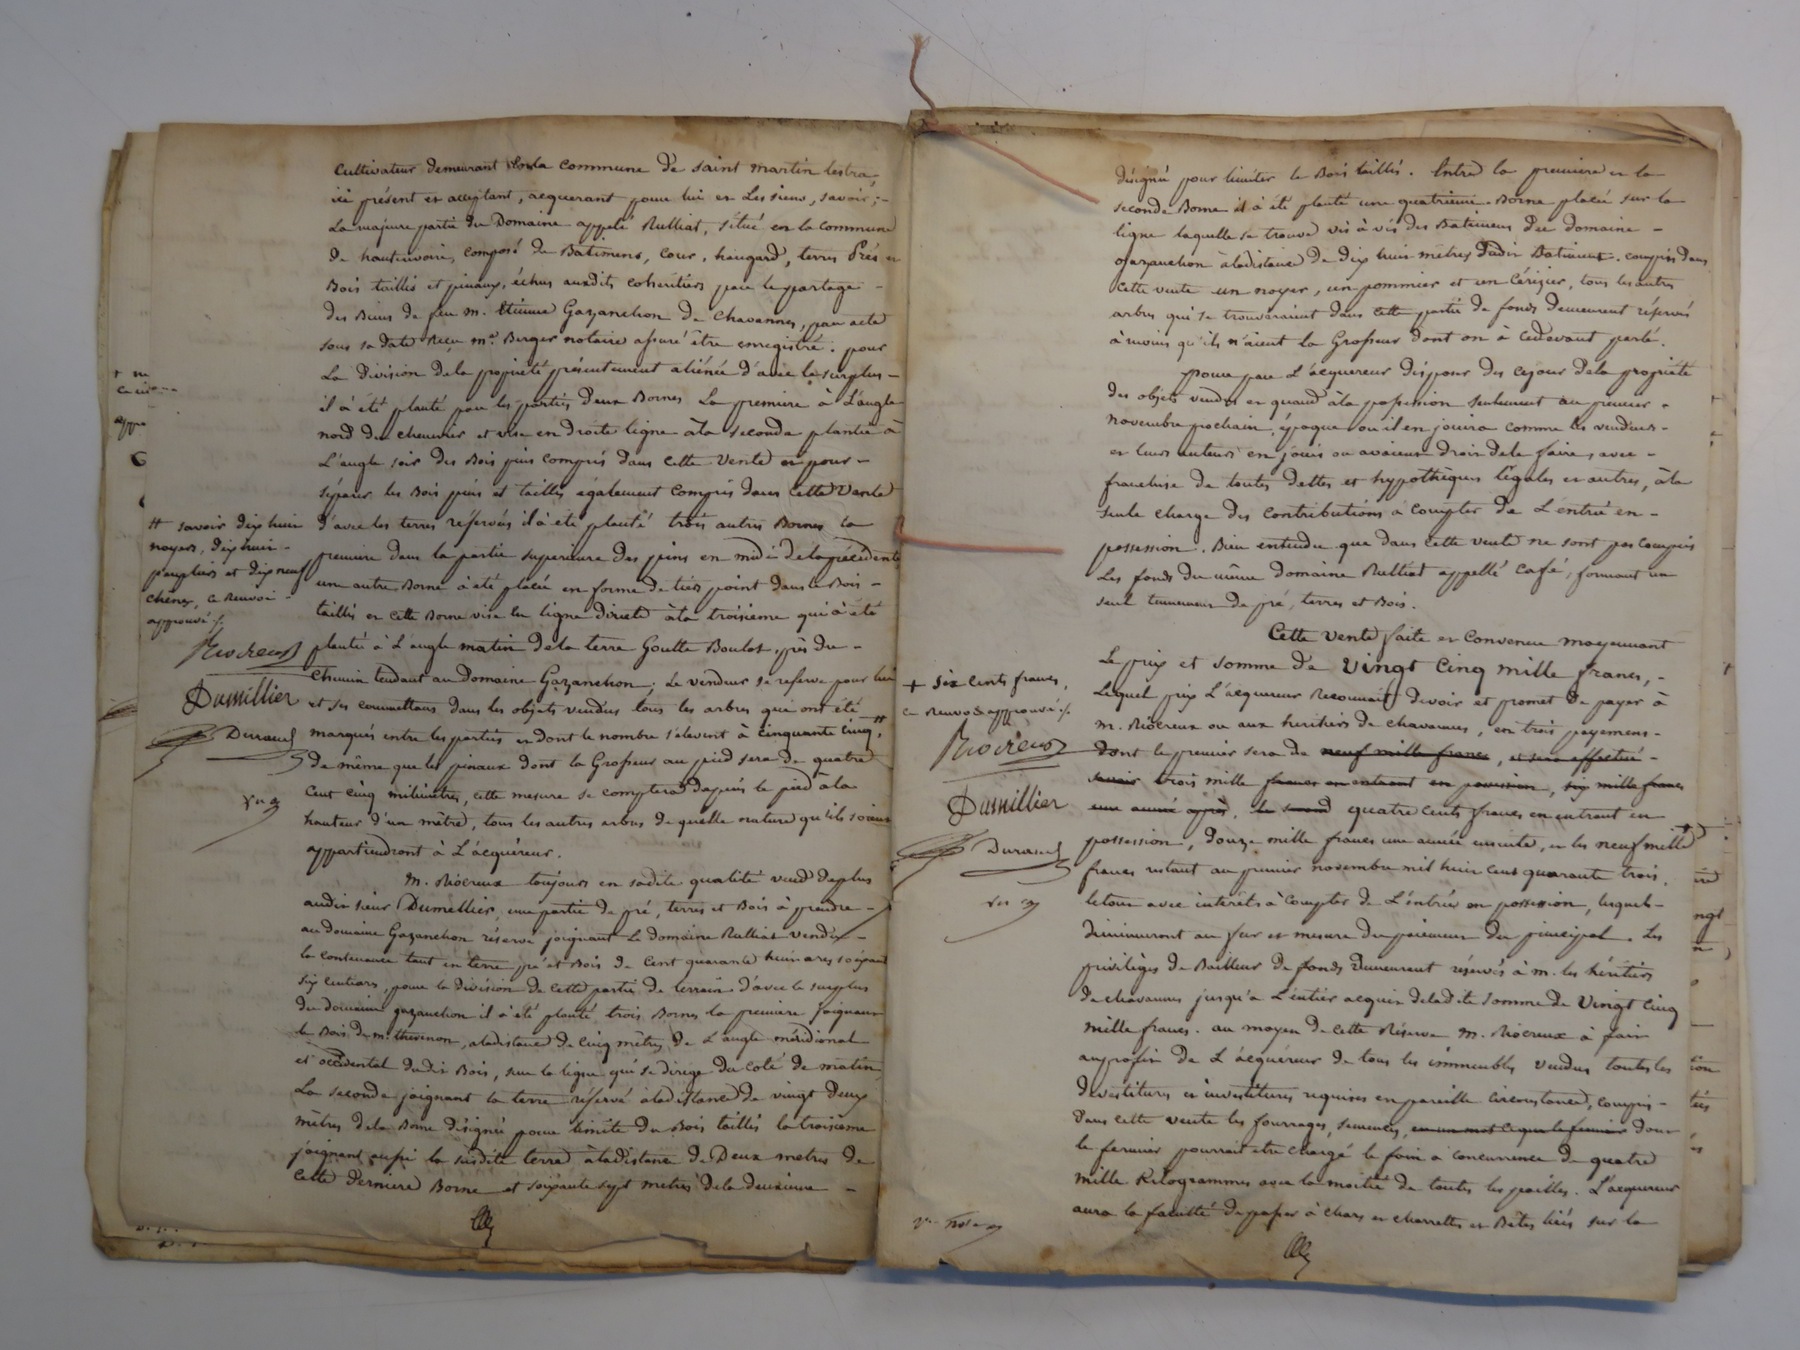 Cultivateur demeurant sur la commune de saint martin lestra,
ici présent et acceptant, acquerant pour lui et Les siens, savoir; -
La majeure partie du Domaine appelé Rulliat, situé en la commune
de hauterivoire, composé de Batimens, cour, hangard, terres Prés et
Bois taillis et pinaux, échus auxdits cohéritiers par le partage -
des Biens de feu m. Etienne Gazanchon de Chavannes, par acte
sous sa date Reçu me. Berger notaire assuré être enregistré. pour
La division de la propriété présentement aliénée d'avec le surplus -
il à été planté par les parties deux Bornes La premiere a L'angle
nord du chenevier et vise en droite ligne à la seconde plantée à
L'angle soir des Bois pins compris dans cette vente et pour -
séparer les Bois pins et taillis également compris dans cette vente
d'avec les terres réservées il à été planté trois autres Bornes la
premiere dans la partie superieure des pins en midi de la précédente
une autre Borne à été placée en forme de tiers point dans le Bois -
taillis et cette Borne vise en ligne directe à la troisieme qui à été
plantée à L'angle matin de la terre Goutte Boulat, près du -
Chemin tendant au Domaine Gazanchon; Le vendeur se reserve pour lui
et ses commettans dans les objets vendus tous les arbres qui ont été
marqués entre les parties et dont le nombre s'elevent à cinquante cinq, #
de même que les pinaux dont la Grosseur au pied sera de quatre
Cent cinq milimètres, cette mesure se comptera depuis le pied à la
hauteur d'un mètre, tous les autres arbres de quelle nature qu'ils soient
appartiendront à L'acquéreur.
M. Riocreux toujours en sadite qualité vend de plus
audit sieur Dumillier, une partie de pré, terres et Bois à prendre -
au domaine Gazanchon réservé joignant Le domaine Rulliat vendu -
la contenance tant en terre pré et Bois de Cent quarante huit ares soixante
six centiares, pour la division de cette partie de terrain d'avec le surplus
du domaine gazanchon il à été planté trois Bornes la premiere joignant
le Bois de m. thevenon, a la distance de cinq mètres de L'angle méridional
et occidental dudit Bois, sur la ligne qui se dirige du coté de matin,
La seconde joignant la terre réservé à la distance de vingt deux
mètres de la Borne désignée pour limite du Bois taillis la troisieme
joignant aussi la susdite terre à la distance de Deux metres de
Cette derniere Borne et soixante sept metres de la deuxieme -
# savoir dix huit
noyers, dix huit -
peupliers et dix neuf
chênes, ce renvoi
approuvé ./.
Riocreux
Dumillier
Durand
désignée pour limiter le Bois taillis. Entre la premiere et la
seconde Borne il à été planté une quatrieme Borne placée sur la
ligne laquelle se trouve vis à vis des Batimens du domaine -
Gazanchon à la distance de dix huit mètres dudit Batiment. compris dans
Cette vente un noyer, un pommier et un cérisier, tous les autres
arbres qui se trouveraient dans cette partie de fonds demeurent réservés
à moins qu'ils n'aient la Grosseur dont on à cidevant parlé.
Pour par L'acquereur disposer dès cejour de la propriété
des objets vendus et quand à la possession seulement au premier -
novembre prochain, époque ou il en jouira comme les vendeurs -
et leurs auteurs en jouis ou avaient droit de le faire, avec -
franchise de toutes dettes et hypothèques légales et autres, à la
seule charge des contributions a compter de L'entrée en -
possession. Bien entendu que dans cette vente ne sont pas compris
Les fonds du même domaine Rulliat appellé Café, formant un
seul tennement de pré, terres et Bois.
Cette vente faite et convenue moyennant
Le prix et somme de vingt cinq mille francs, -
Lequel prix L'acquereur Reconnait devoir et promet de payer à
m. Riocreux ou aux heritiers de chavannes, en trois payemens -
dont le premier sera de neuf mille francs, et sera effectué -
savoir trois mille francs en entrant en possession, six mille francs
une année après, le second quatre cents francs en entrant en
possession, douze mille francs une année ensuite, et les neuf mille +
francs restant au premier novembre mil huit cent quarante trois,
le tout avec intérêts à compter de L'entrée en possession, lesquels -
diminueront au fur et mesure du paiement du principal. Les
privilèges de Bailleur de fonds demeurent réservés à m. les héritiers
de chavannes jusqu'a L'entier acquit de ladite somme de vingt cinq
mille francs. au moyen de cette Réserve m. Riocreux à fait
au profit de L'acquéreur de tous les immeubles vendus toutes les
devestitures et investitures requises en pareille circonstance, compris -
dans cette vente les fourrages, semences, en un mot ce que le fermier dont
le fermier pourrait etre chargé le foin a concurrence de quatre
mille Kilogrammes avec la moitié de toutes les pailles. L'acquereur
aura la faculté de passer à chars et charrettes et Bêtes liées sur la
+ six cents francs,
ce renvoi approuvé ./.
Riocreux
Dumillier
Durand